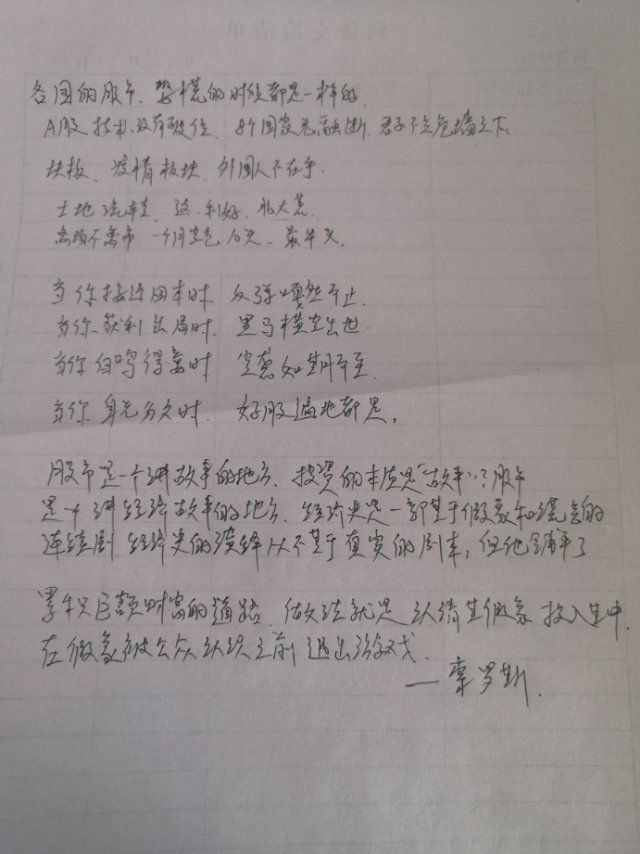 各国的股市、恐慌的时候都是一样的.
A股 技术 没有破位. 8个国家元融断. 君子不立危墙之下.
块板、疫情板块. 外国人不在乎.
土地流转. 这 利好. 北大荒.
离场不离市 一个月空仓 最牛
当你接近回本时 反弹嘎然而止.
当你获利出局时. 黑马横空出世.
当你自鸣得意时 噩如期而至.
当你身无分文时. 好股遍地都是。
股市是一个讲故事的地方. 投资的本质是"故事"? 股市
是个讲经济故事的地方. 经济史是一部基于假象和谎言的
连续剧. 经济史的演绎从不基于真实的剧本, 但他铺平了
累积巨额财富的道路. 做法就是认清其假象 投入其中.
在假象被公众认识之前退出游戏.
—索罗斯.